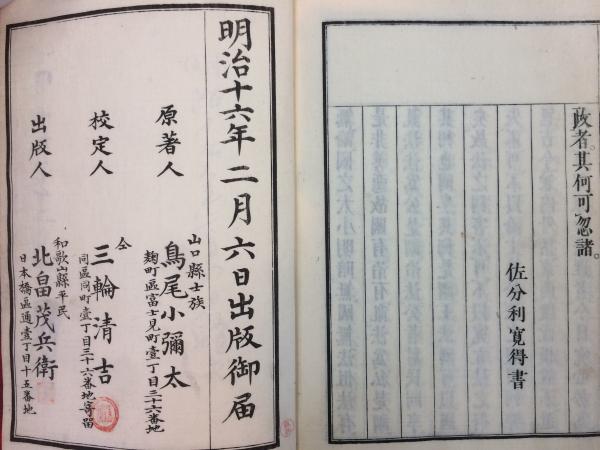 政者。其何可忽諸。
佐分利寛得書
明治十六年二月六日出版御届
山口縣士族
原著人 鳥尾小彌太
麹町區富士見町壹丁目三十六番地
仝
校定人 三輪清吉
同區同町壹丁目三十六番地寄留
和歌山縣平民
出版人 北畠茂兵衛
日本橋區通壹丁目十五番地